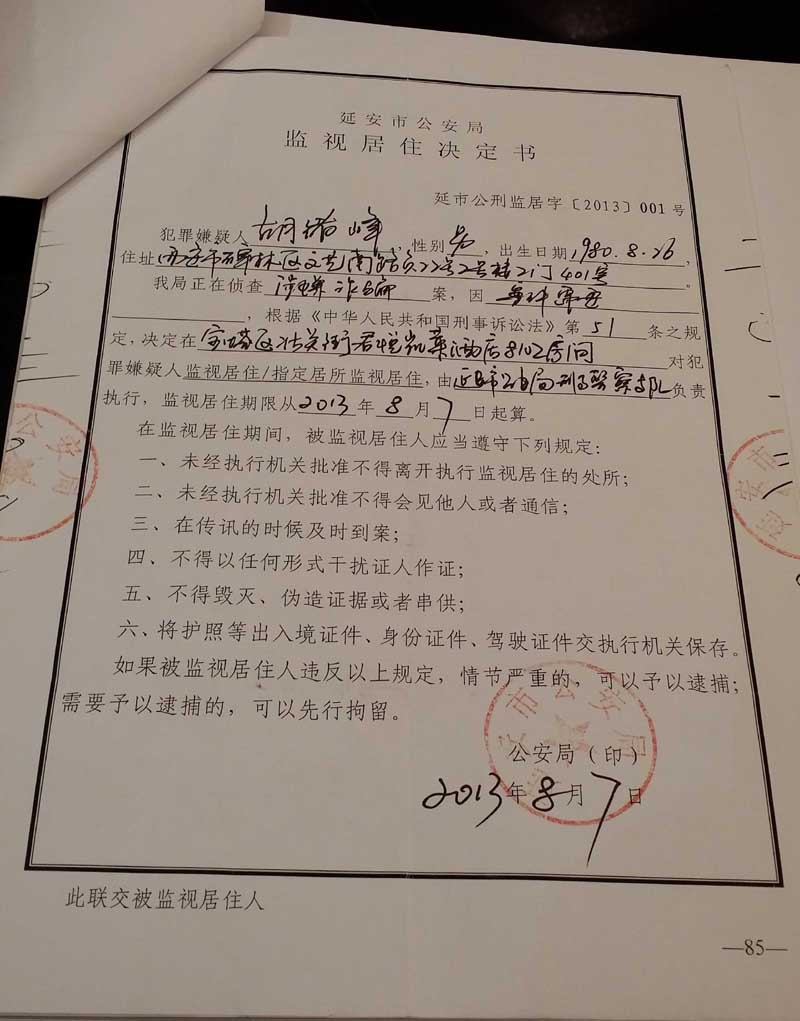 延安市公安局
监视居住决定书
延市公刑监居字〔2013〕001号
犯罪嫌疑人 胡 峰，性别 男，出生日期 1980.8.26，
住址 西安市碑林区文艺南路 22号2号楼2门401号。
我局正在侦查 涉嫌诈骗 案，因
，根据《中华人民共和国刑事诉讼法》第 51 条之规
定，决定在 宝塔区 关街君悦凯莱酒店8102房间 对犯
罪嫌疑人监视居住/指定居所监视居住，由 延安市公安局刑事警察支队 负责
执行，监视居住期限从 2013 年 8 月 7 日起算。
在监视居住期间，被监视居住人应当遵守下列规定：
一、未经执行机关批准不得离开执行监视居住的处所；
二、未经执行机关批准不得会见他人或者通信；
三、在传讯的时候及时到案；
四、不得以任何形式干扰证人作证；
五、不得毁灭、伪造证据或者串供；
六、将护照等出入境证件、身份证件、驾驶证件交执行机关保存。
如果被监视居住人违反以上规定，情节严重的，可以予以逮捕；
需要予以逮捕的，可以先行拘留。
公安局（印）
2013年8月7日
此联交被监视居住人
—85—